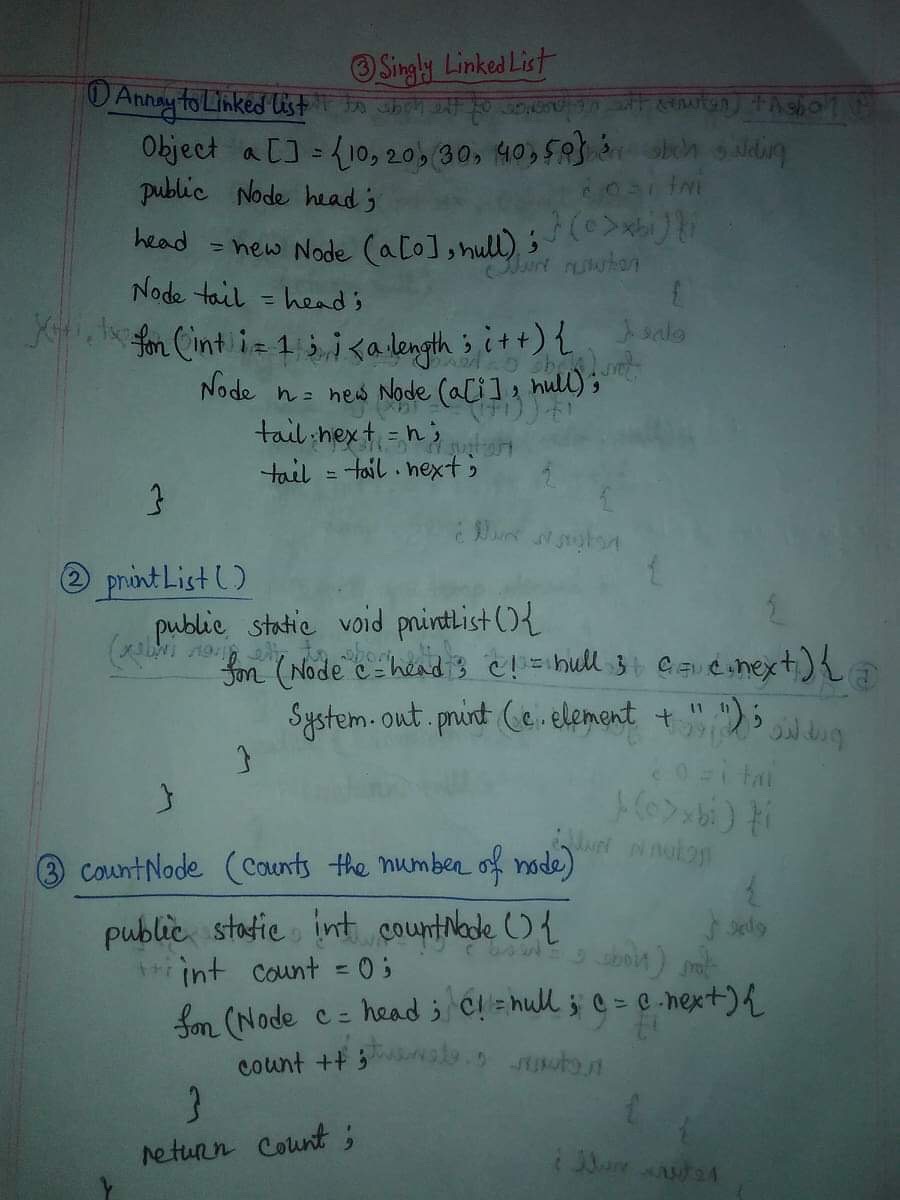 ③ Singly LinkedList
① Array to Linked list
Object a[] = {10, 20, 30, 40, 50};
public Node head;
head = new Node (a[0], null);
Node tail = head;
for (int i = 1; i < a.length; i++) {
Node n = new Node (a[i], null);
tail.next = n;
tail = tail.next;
}
② printList()
public static void printList() {
for (Node c = head; c != null; c = c.next) {
System.out.print (c.element + " ");
}
}
③ countNode (counts the number of node)
public static int countNode () {
int count = 0;
for (Node c = head; c != null; c = c.next) {
count ++;
}
return count;
}